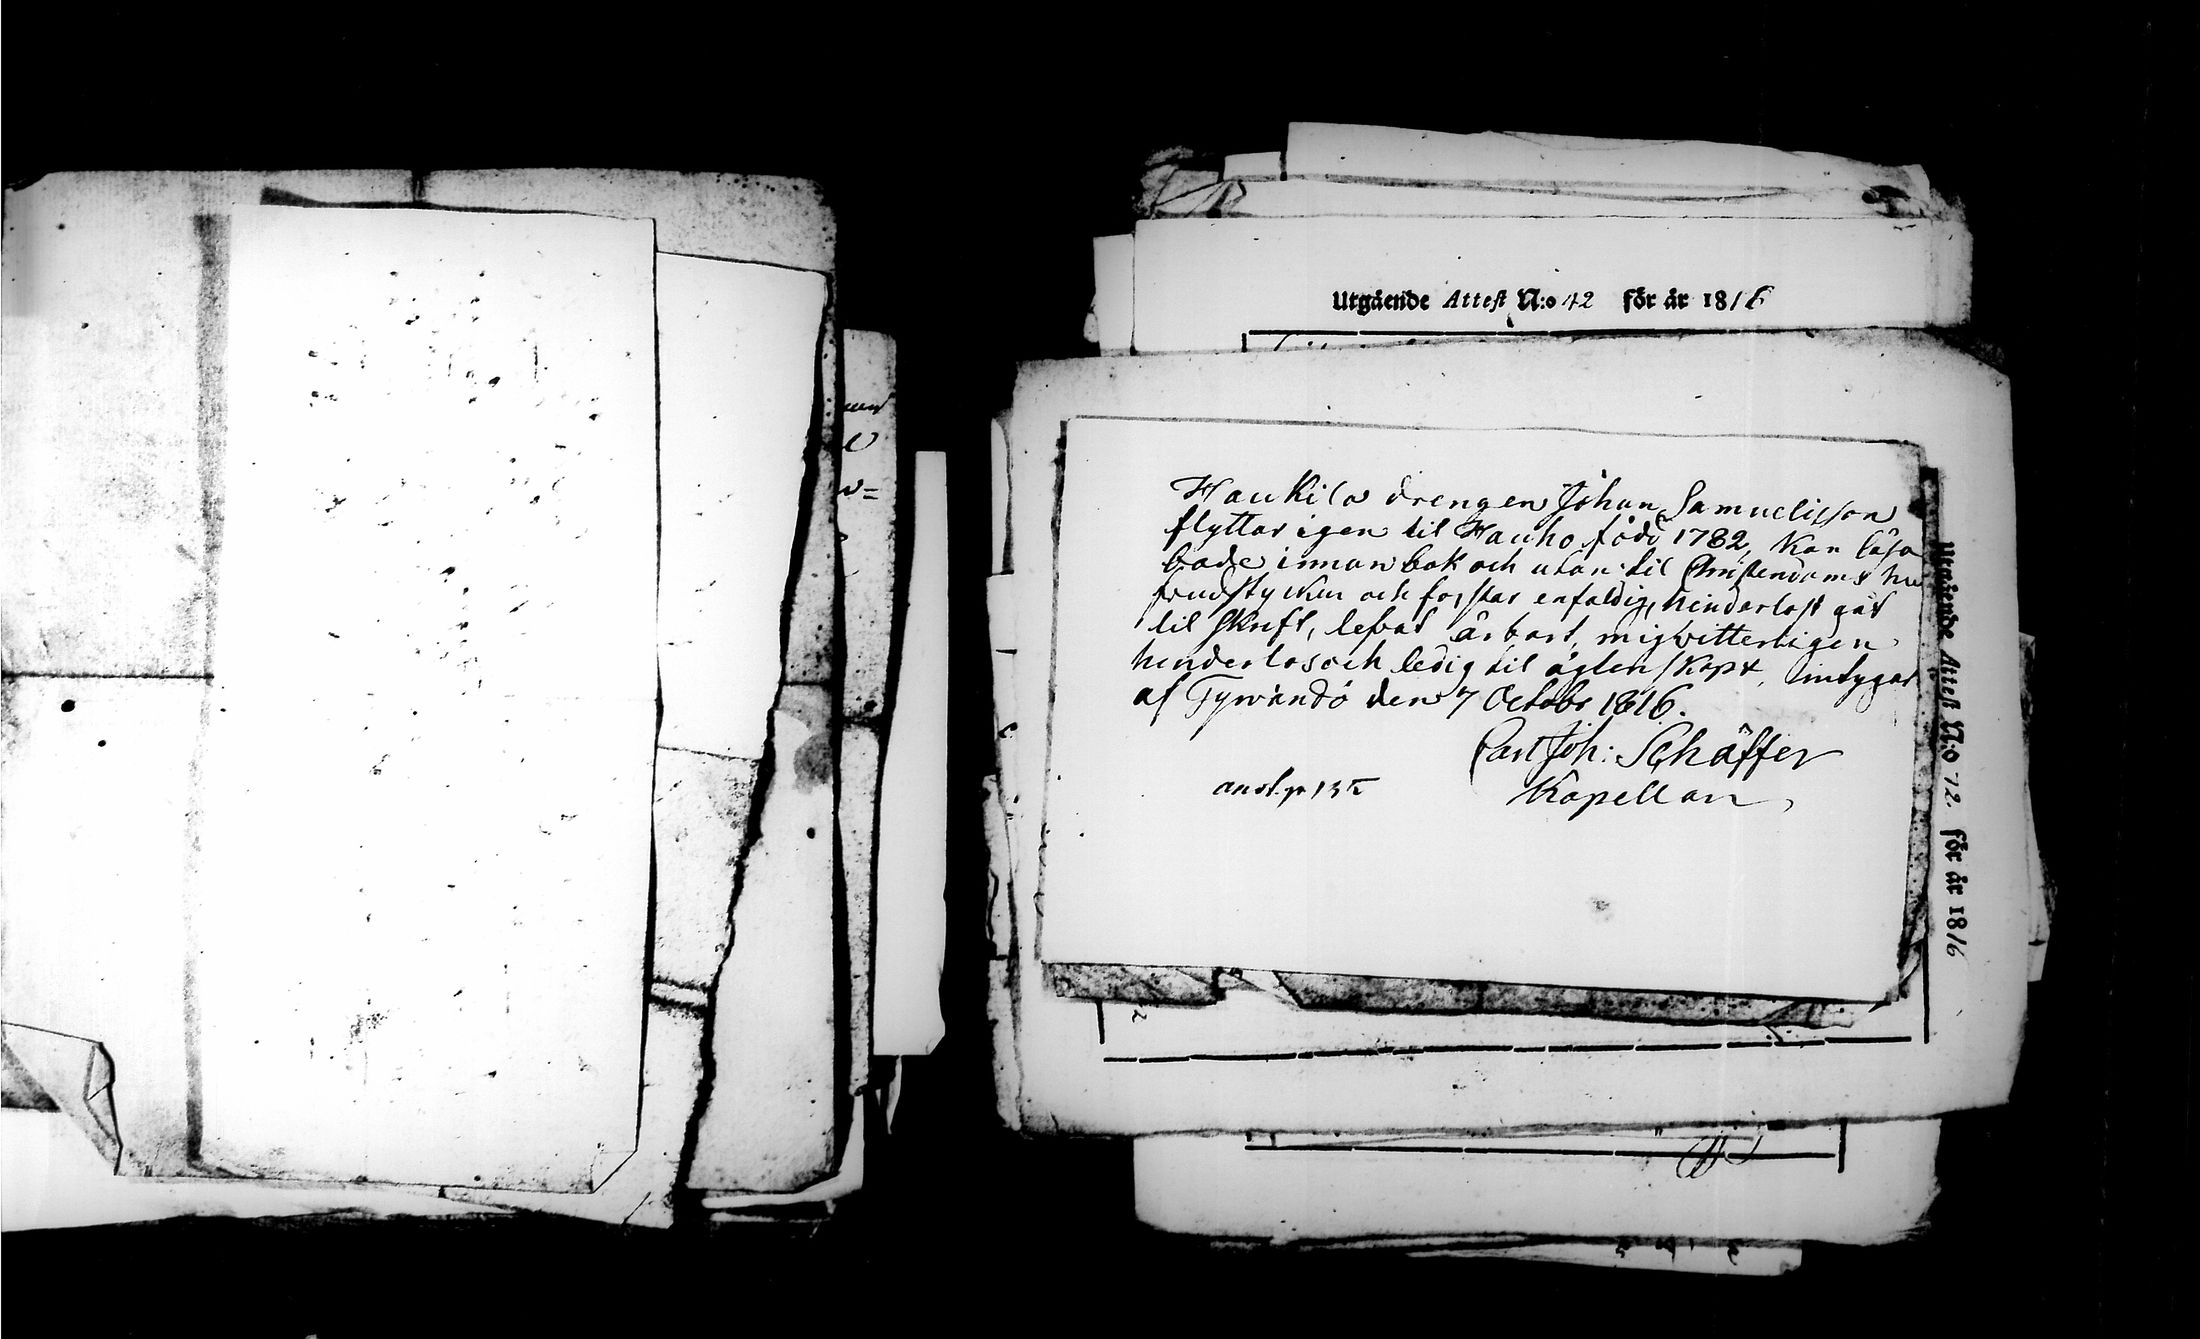 Utgående Attest N:o 42 för år 1816
Haukila drengen Johan Samuelisson
flyttar igen til Hauho född 1782, kan läsa
bade innan bok och utan til Christendoms hu
fvudstycken och forstar enfaldig, hinderlost gåt
til skrift, lefvat ärbart, migvitterligen
hinderlos och ledig til ägtenskapt, intygat
af Tywändö den 7 Octobr 1816.
Carl Joh: Schäffer
Kapellan
Utgående Attest N:o 72. för år 1816